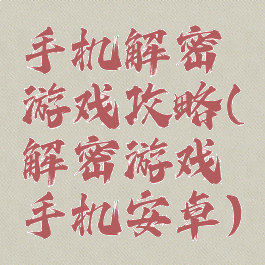 手机解密
游戏攻略(
解密游戏
手机安卓)